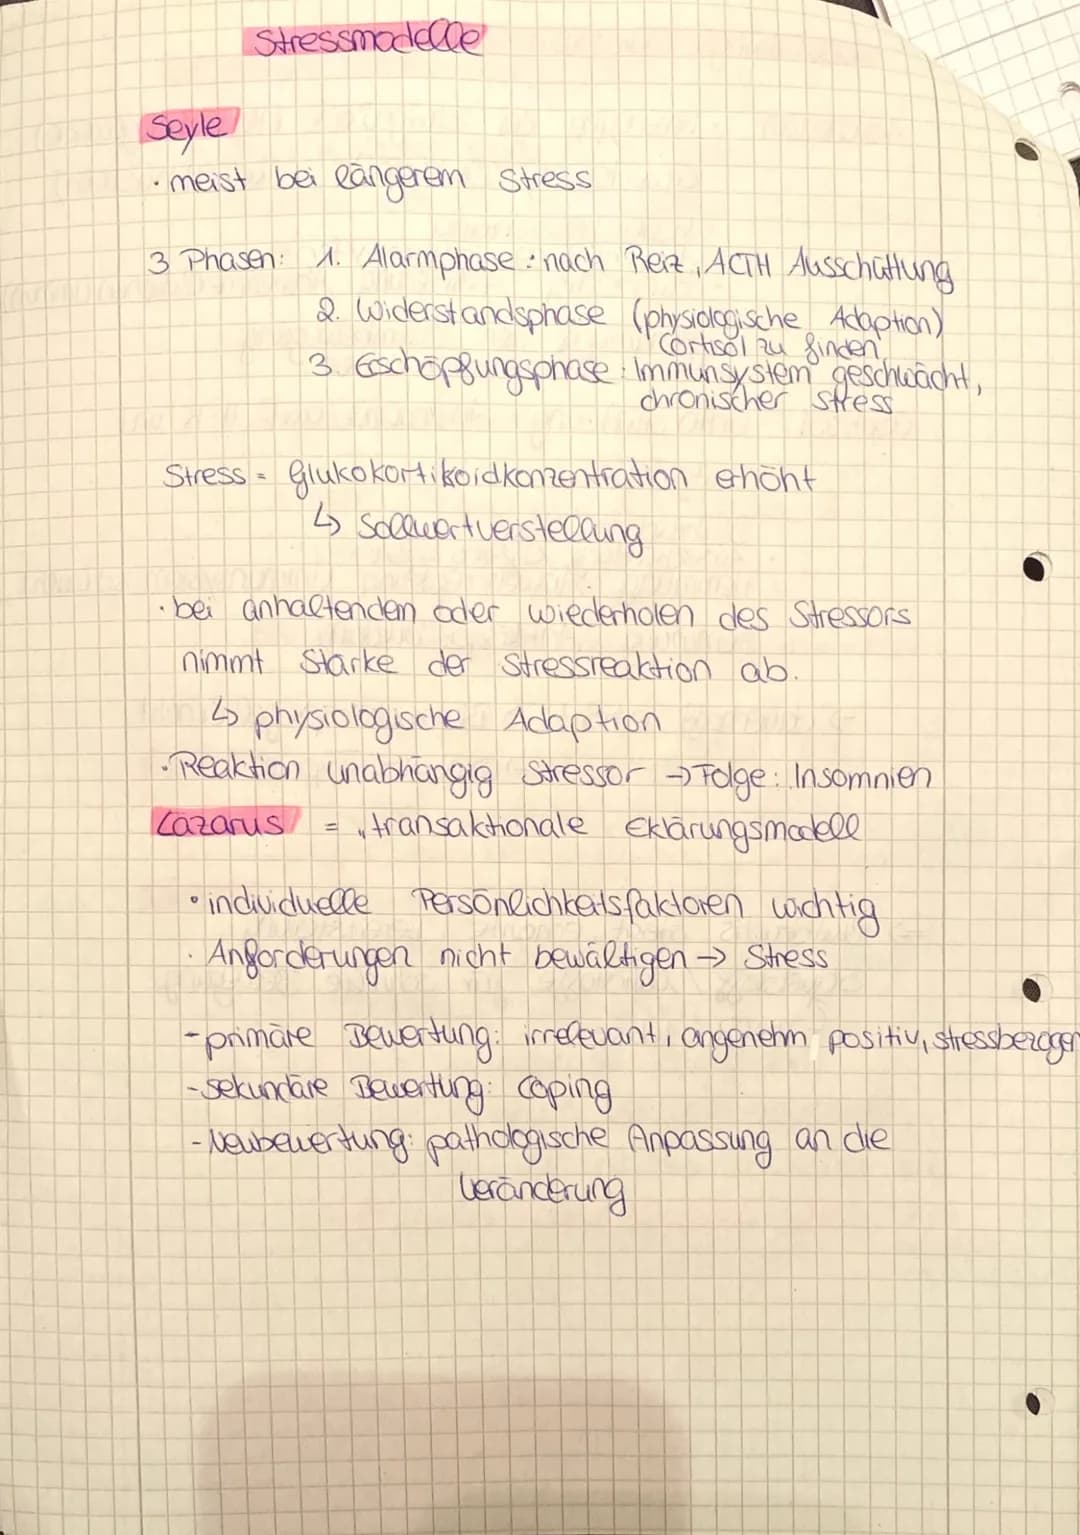 Stressmodelle
Seyle
· meist bei längerem Stress
3 Phasen: 1. Alarmphase: nach Reiz, ACTH Ausschüttung
2. Widerstandsphase (physiologische Adaption)
Cortisol zu finden
3. Erschöpfungsphase: Immunsystem geschwächt,
chronischer Stress
Stress = Glukokortikoidkonzentration erhöht
↳ Sollwertverstellung
· bei anhaltendem oder wiederholen des Stressors
nimmt Stärke der Stressreaktion ab.
↳ physiologische Adaption
· Reaktion unabhängig Stressor → Folge: Insomnien
Lazarus = transaktionale Eklärungsmodell
· individuelle Persönlichkeitsfaktoren wichtig
· Anforderungen nicht bewältigen → Stress
- primäre Bewertung: irrelevant, angenehm positiv, stressbezogen
- sekundäre Bewertung: Coping
- Neubewertung: pathologische Anpassung an die
Veränderung